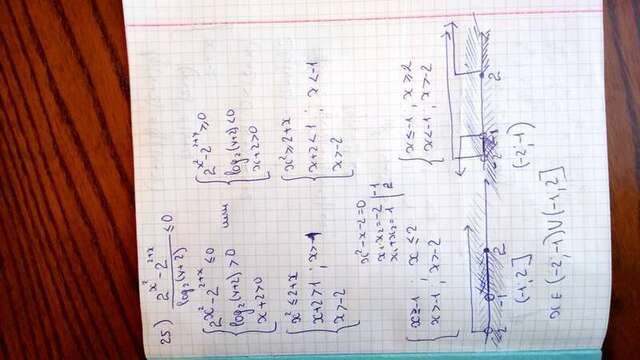 25) (2^(x²) - 2^(2+x)) / log₂(x+2) ≤ 0
{ 2^(x²) - 2^(2+x) ≤ 0 или { 2^(x²) - 2^(2+x) ≥ 0
log₂(x+2) > 0 log₂(x+2) < 0
x+2>0 x+2>0
{ x² ≤ 2+x { x² ≥ 2+x
x+2>1 ; x>-1 x+2<1 ; x<-1
x>-2 x>-2
x²-x-2=0
x₁·x₂=-2 | -1
x₁+x₂=1 | 2
{ x≥-1 ; x≤2 { x≤-1, x≥2
x>-1, x>-2 x<-1, x>-2
-2 -1 2 -2 -1 2
(-1, 2] (-2;-1)
x∈(-2;-1)∪(-1,2]